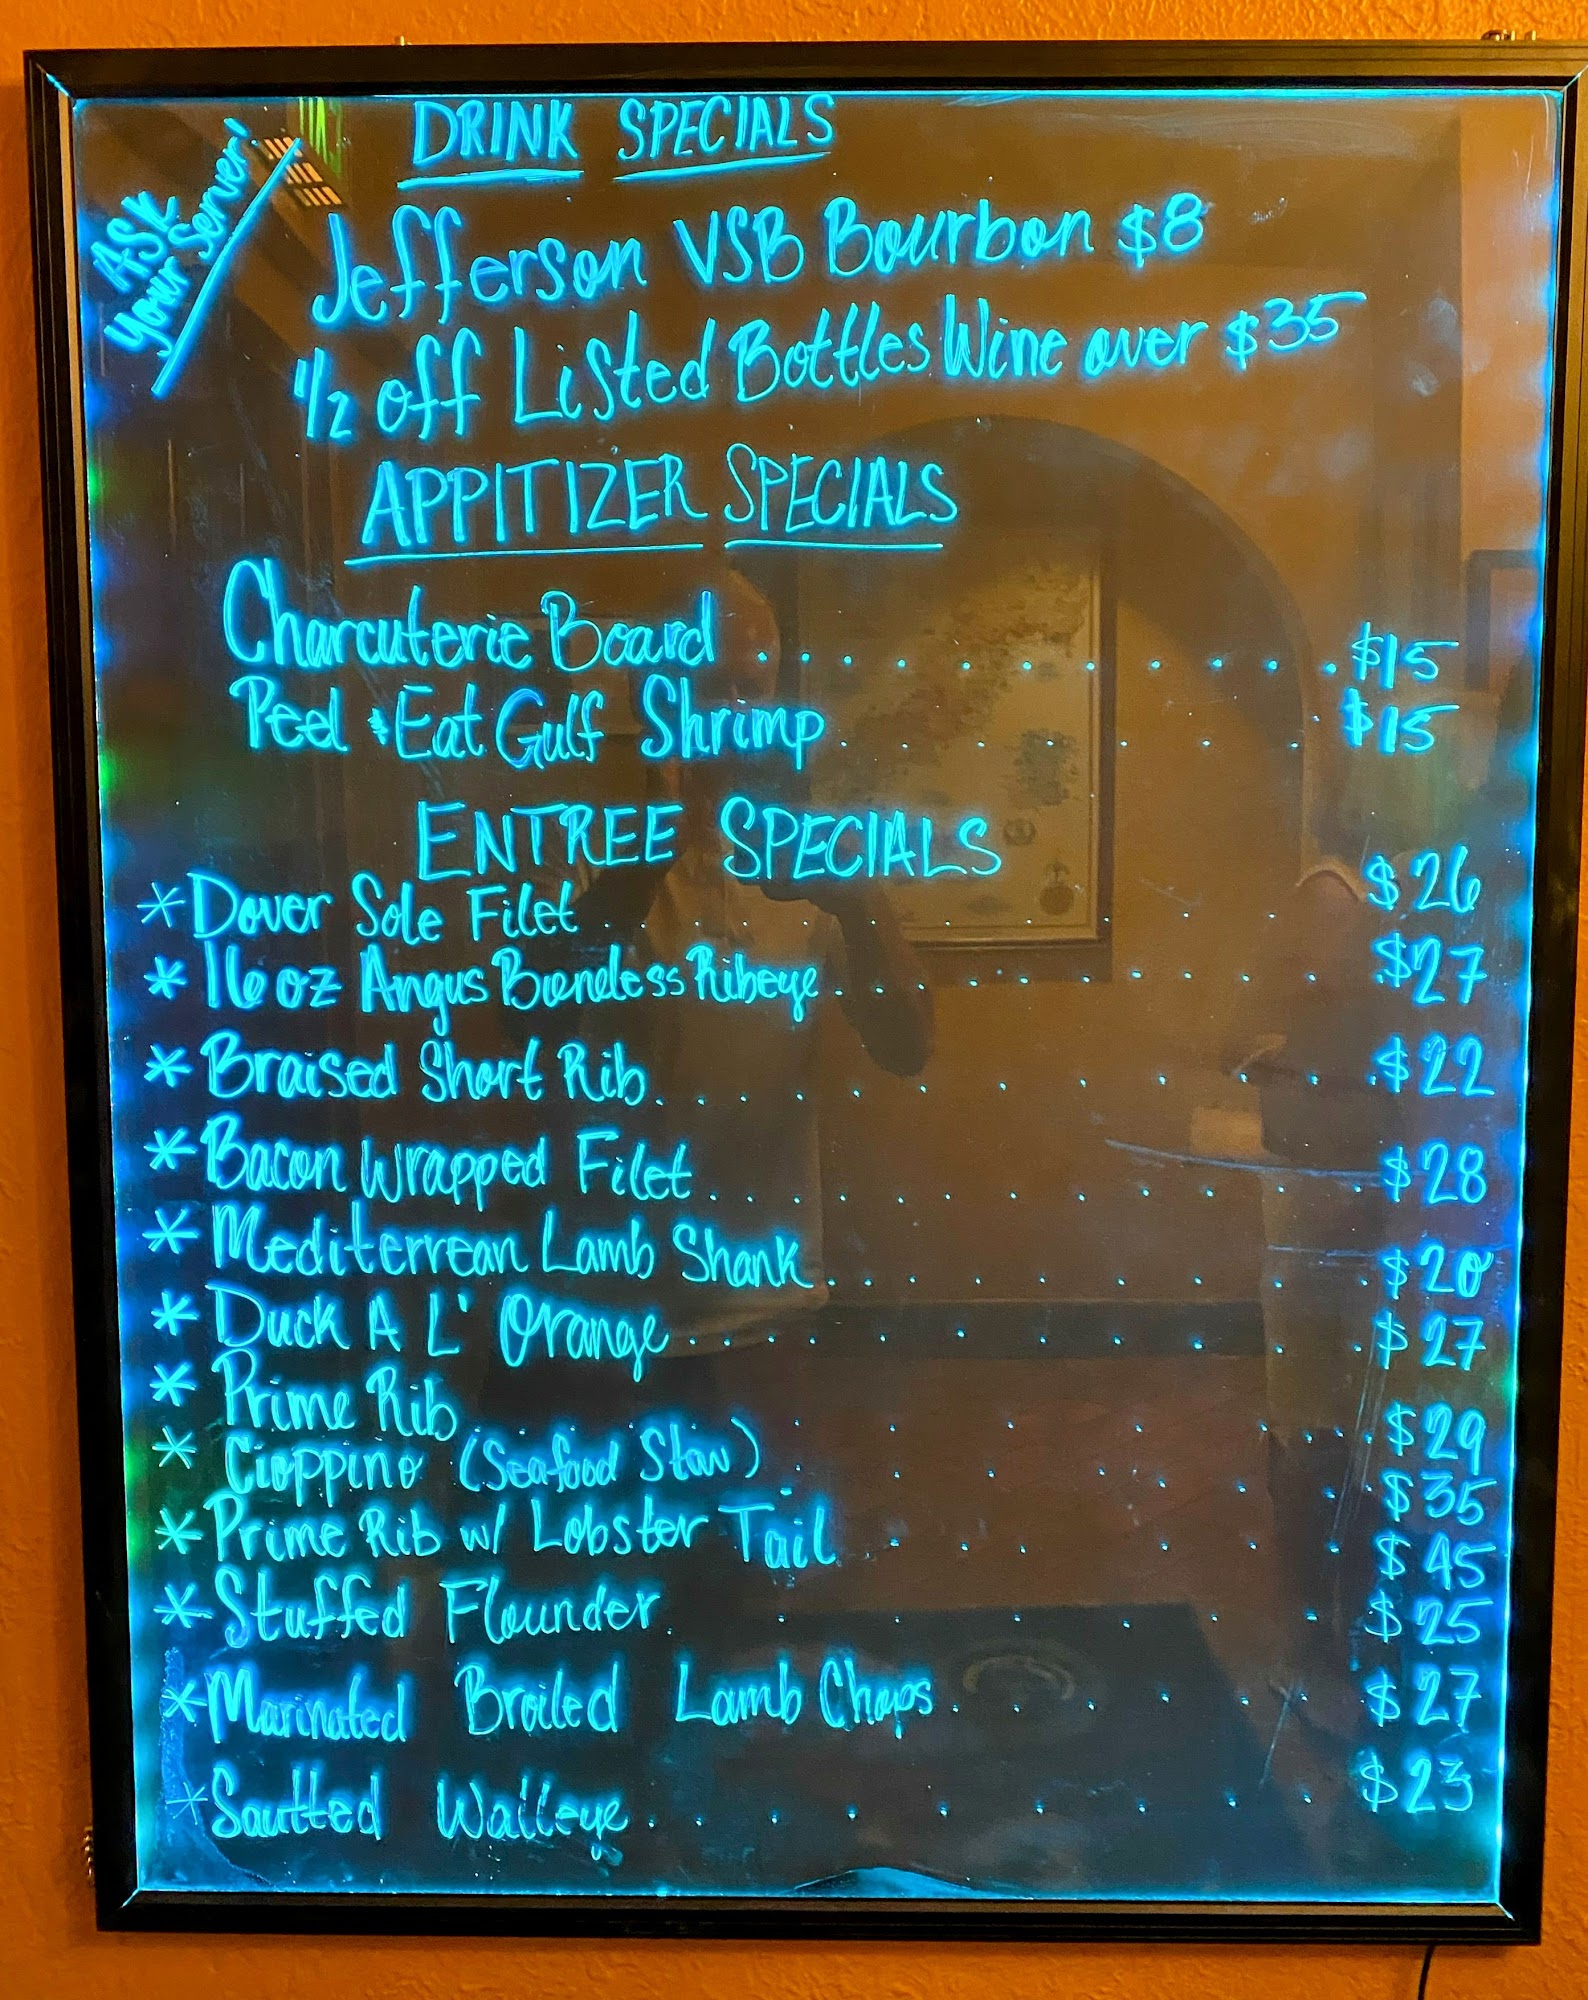 DRINK SPECIALS
ASK
your Server!
Jefferson VSB Bourbon $8
1/2 off Listed Bottles Wine over $35
APPITIZER SPECIALS
Charcuterie Board . . . . . . . . . . $15
Peel & Eat Gulf Shrimp . . . . . . . . $15
ENTREE SPECIALS
* Dover Sole Filet . . . . . . . . . $26
* 16 oz Angus Boneless Ribeye . . . . . . . . . $27
* Braised Short Rib . . . . . . . . . . $22
* Bacon Wrapped Filet . . . . . . . . . . $28
* Mediterrean Lamb Shank . . . . . . . . . $20
* Duck A L' Orange . . . . . . . . . . $27
* Prime Rib . . . . . . . . $29
* Cioppino (Seafood Stew) . . . . . . . $35
* Prime Rib w/ Lobster Tail . . . . . . $45
* Stuffed Flounder . . . . . . $25
* Marinated Broiled Lamb Chops . . . . . . $27
* Sautted Walleye . . . . . . . . $23